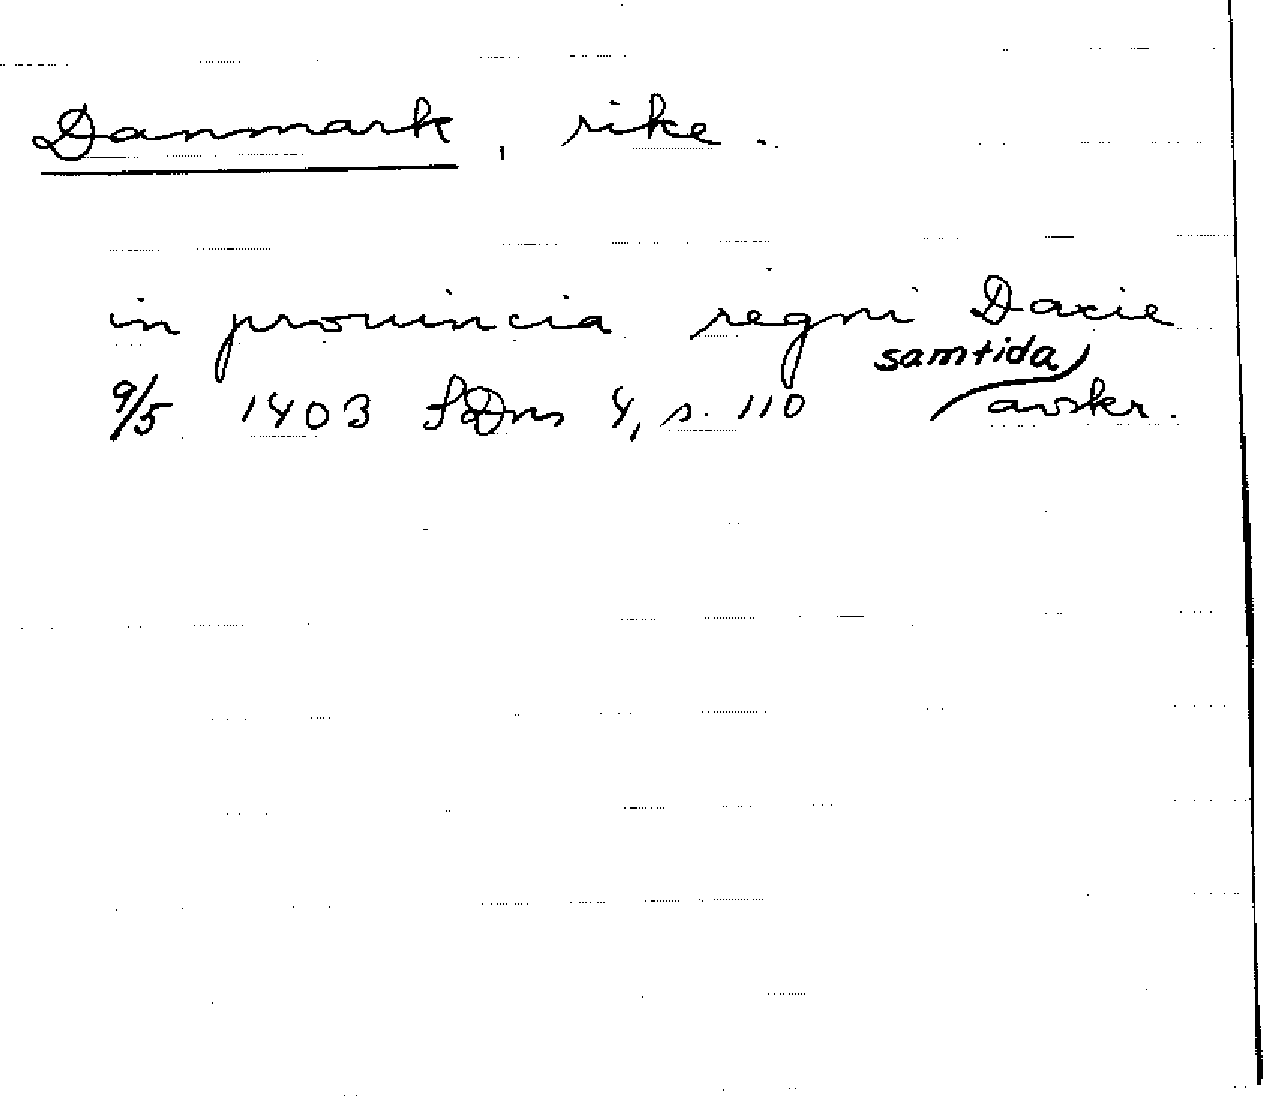 Danmark, rike.
in prouincia regni Dacie
samtida
9/5 1403 SDns 4, s. 110 avskr.